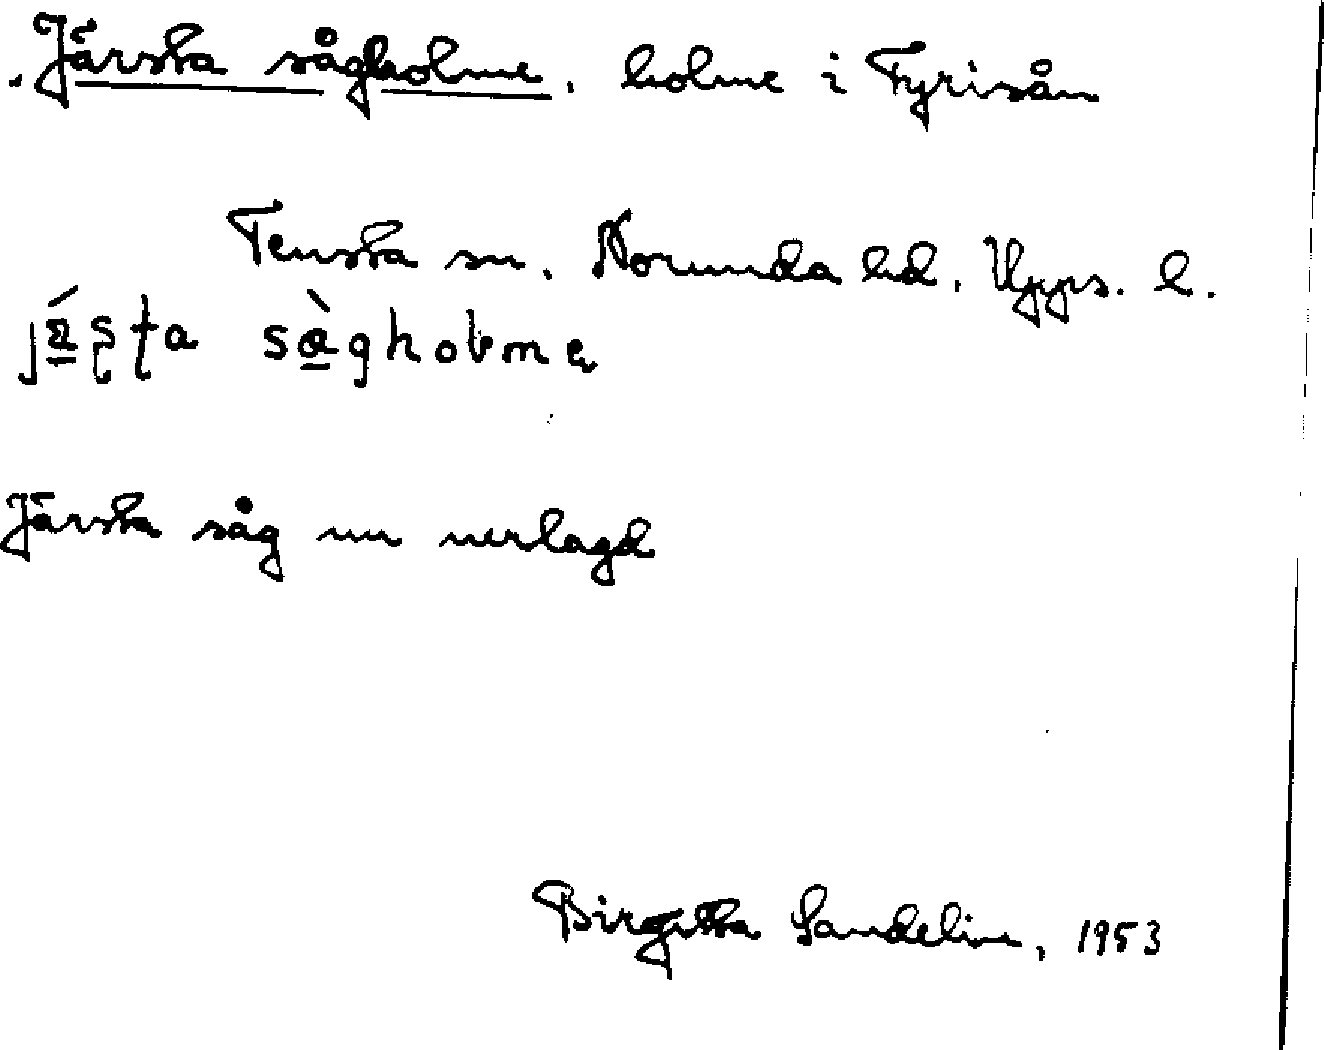 Järsta sågholme, holme i Fyrisån
Tensta sn. Norunda hd. Upps. l.
sågholme
Järsta såg nu nerlagd
Birgitta Sandelin, 1953